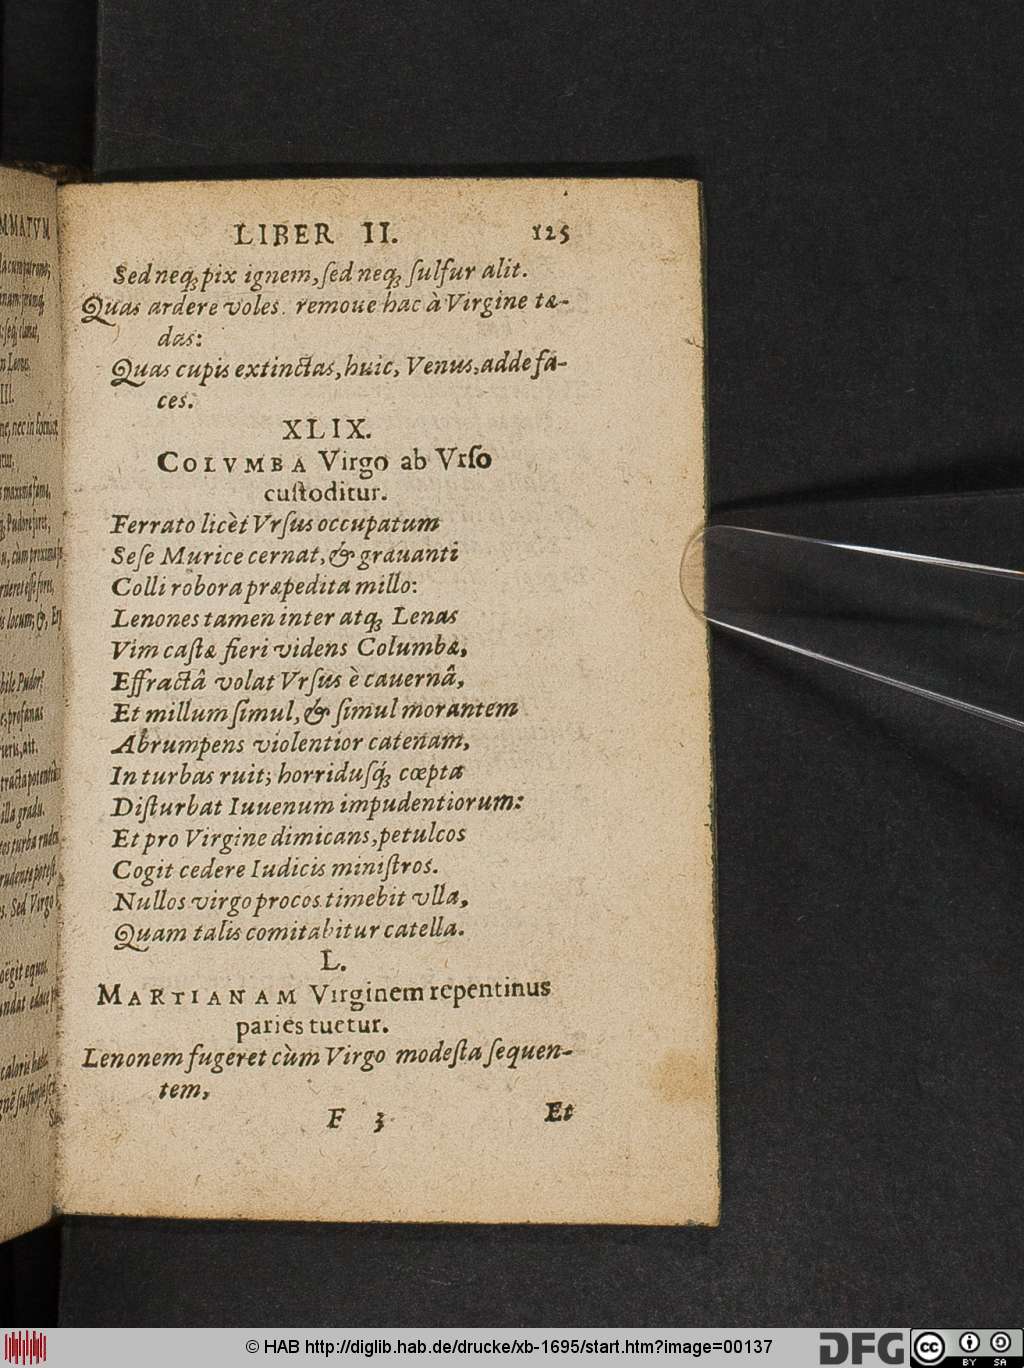 LIBER II. 125
Sed neq; pix ignem, sed neq; sulfur alit.
Quas ardere voles. remoue hac à Virgine tæ-
das:
Quas cupis extinctas, huic, Venus, adde fa-
ces.
XLIX.
COLVMBA Virgo ab Vrso
custoditur.
Ferrato licèt Vrsus occupatum
Sese Murice cernat, & grauanti
Colli robora præpedita millo:
Lenones tamen inter atq; Lenas
Vim castæ fieri videns Columbæ,
Effractâ volat Vrsus è cauernâ,
Et millum simul, & simul morantem
Abrumpens violentior catenam,
In turbas ruit; horridusq́; cœpta
Disturbat Iuuenum impudentiorum:
Et pro Virgine dimicans, petulcos
Cogit cedere Iudicis ministros.
Nullos virgo procos timebit vlla,
Quam talis comitabitur catella.
L.
MARTIANAM Virginem repentinus
paries tuetur.
Lenonem fugeret cùm Virgo modesta sequen-
tem,
F 3 Et
© HAB http://diglib.hab.de/drucke/xb-1695/start.htm?image=00137
DFG cc BY SA